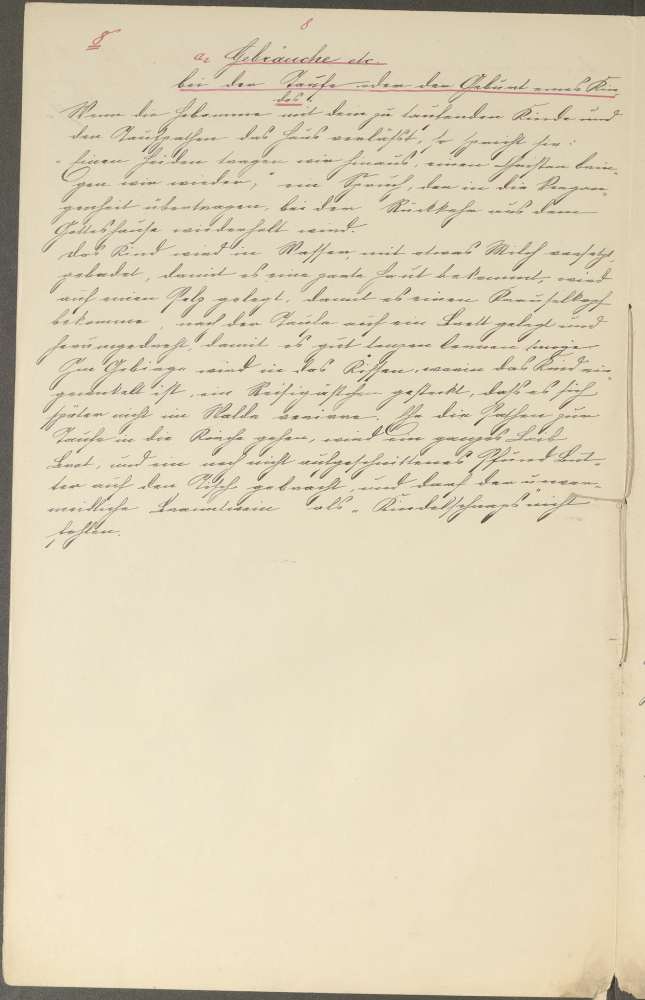 8
8
a, Gebräuche etc.
bei der Taufe oder der Geburt eines Kin
des!
Wenn die Hebamme mit dem zu taufenden Kinde und
den Taufpathen das Haus verläßt, so spricht sie:
„Einen Heiden tragen wir hinaus, einen Christen brin-
gen wir wieder," ein Spruch, der in die Vergan-
genheit übertragen, bei der Rückkehr aus dem
Gotteshause wiederholt wird.
Das Kind wird in Wasser, mit etwas Milch versetzt,
gebadet, damit es eine zarte Haut bekommt, wird
auf einen Pelz gelegt, damit es einen Krauselkopf
bekomme, nach der Taufe auf ein Brett gelegt und
herumgedreht, damit es gut tanzen lernen möge.
Im Gebirge wird in das Kissen, worin das Kind ein
gewickelt ist, ein Reisigästchen gesteckt, daß es sich
später nicht im Walde verirre. Ehe die Pathen zur
Taufe in die Kirche gehen, wird ein ganzes Laib
Brot, und ein noch nicht aufgeschnittenes Pfund But-
ter auf den Tisch gebracht, und darf der unver-
meidliche Branntwein als „Kindelschnaps" nicht
fehlen.